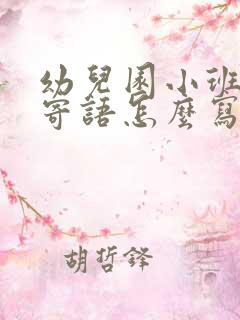 幼兒園小班
寄語怎麼寫
胡哲鋒